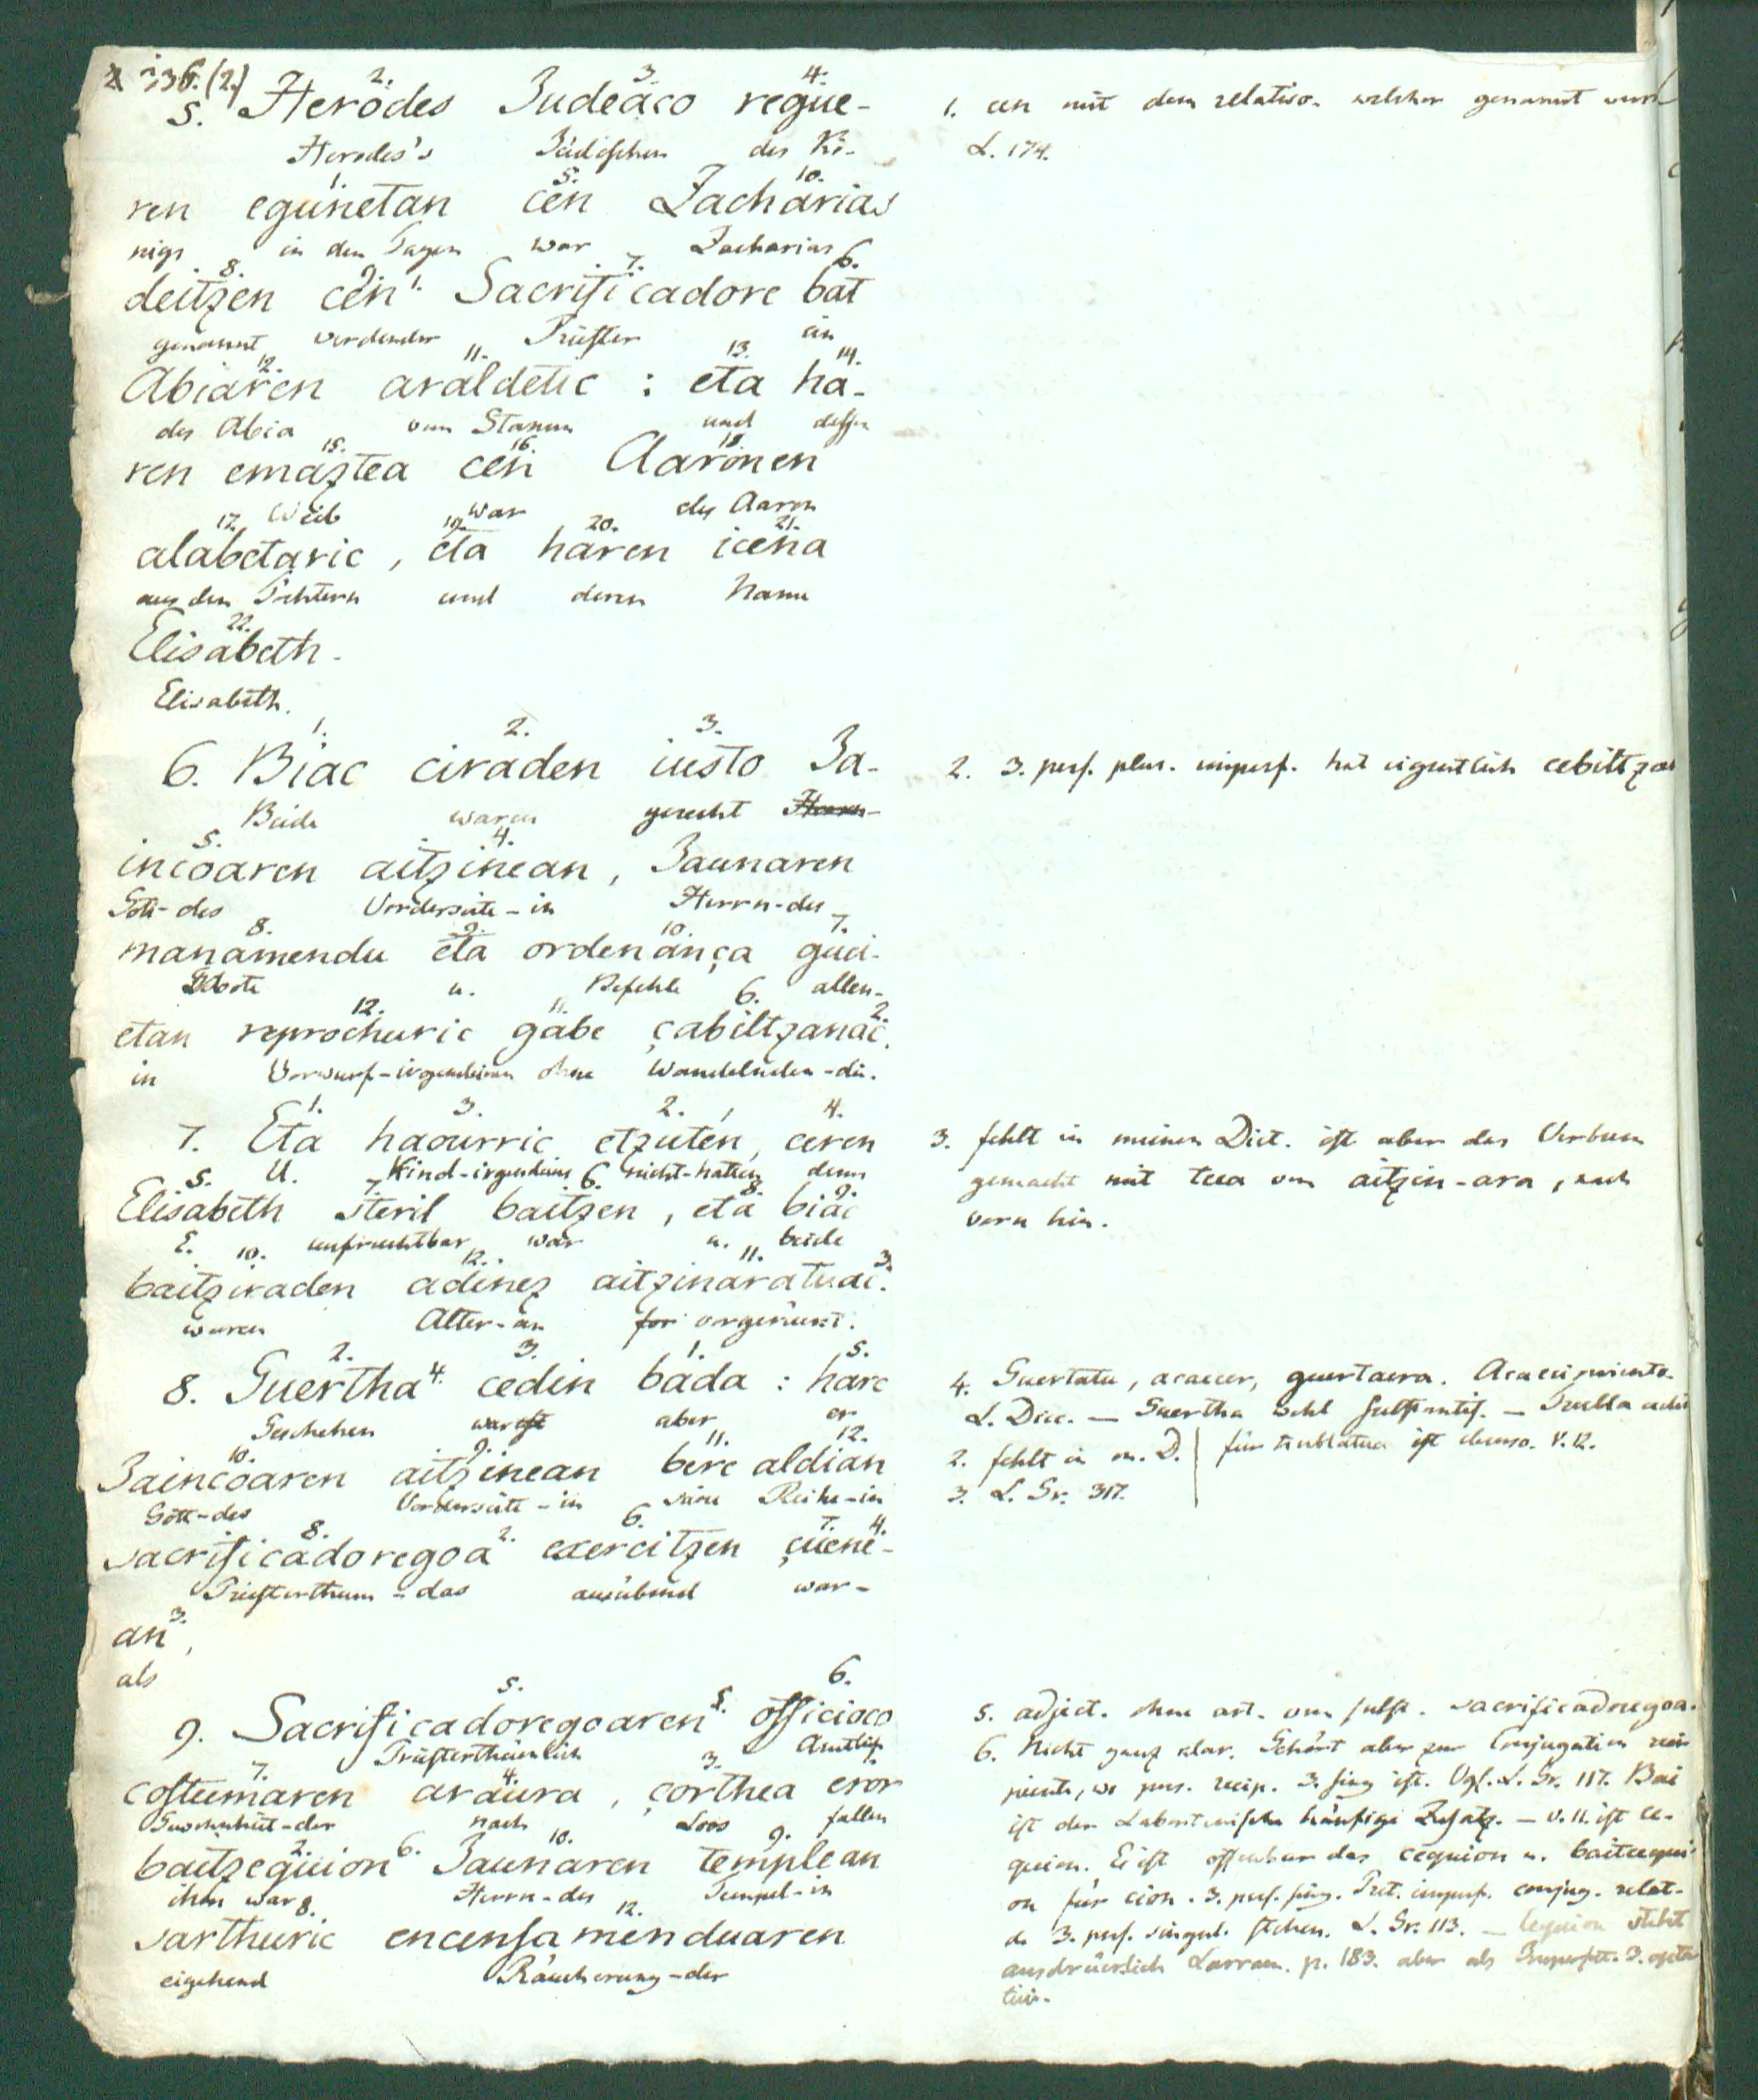 136.(2.)
2. 3. 4.
5. Herodes Judeaco regue-
Herodes's Jüdischen des Kö-
1. 5. 10.
ren egunetan cen Zacharias
nigs in den Tagen war Zacharias
8. 9. 7. 6.
deitzen cen 1. Sacrificadore bat
genannt werdender Priester ein
12. 11. 13. 14.
Abiaren araldetic : eta ha-
des Abia vom Stamm und dessen
15. 16. 18.
ren emaztea cen Aaronen
Weib war des Aaron
17. 19. 20. 21.
alabetaric, eta haren icena
aus den Töchtern und deren Name
22.
Elisabeth.
Elisabeth.
1. 2. 3.
6. Biac ciraden iusto Ja-
Beide waren gerecht
5. 4.
incoaren aitzinean, Jaunaren
Gott-des Vorderseite-in Herrn-des
8. 9. 10. 7.
manamendu eta ordenança guci-
Gebote u. Befehle allen-
12. 11. 6. 2.
etan reprochuric gabe çabiltzanac.
in Vorwurf-irgendeinen ohne Wandelnden-die.
1. 3. 2. 4.
7. Eta haourric etzuten, ceren
U. Kind-irgendeines nicht-hatten denn
5. 7. 6. 8. 9.
Elisabeth steril baitzen, eta biac
E. unfruchtbar war u. beide
10. 12. 11. 3.
baitziraden adinez aitzinaratuac.
waren Alter-an vorgerückt.
2. 3. 1. 5.
8. Guertha 4. cedin bada : harc
Geschehen war aber er
10. 9. 11. 12.
Jaincoaren aitzinean bere aldian
Gott-des Vorderseite-in seine Reihe-in
8. 2. 6. 7. 4.
sacrificadoregoa exercitzen çuene-
Priesterthum-das ausübend war-
3.
an,
als
5. 5. 6.
9. Sacrificadoregoaren officioco
Priesterthümlich Amtlich
7. 4. 3. 1.
costumaren araura, çorthea eror
Gewohnheit-der nach Loos fallen
2. 6. 10. 9.
baitzequion Jaunaren templean
ihm war Herrn-des Tempel-in
8. 12.
sarthuric encensamenduaren
eigehend Räucherung-der
1. cen mit dem relativo. welcher genannt
L. 174.
2. 3. pers. plur. imperf. hat eigentlich cebiltzan
3. fehlt in meinem Dict. ist aber das Verbum
gemacht mit tcea von aitzin-ara, nach
vorn hin.
4. Guertatu, acaecer, guertaera. Acaecimiento.
L. Dicc. — Guertha wohl substantif. —
für trublatua ist ebenso. V. 12.
2. fehlt in m. D.
3. L. Gr. 317.
5. adject. ohne art. vom subst. sacrificadoregoa.
6. Nicht ganz klar. Gehört aber zur Conjugation reci-
piente, wo pers. recip. 3. sing ist. Vgl. L. Gr. 117. Bai
ist der Labortanische häufige Zusatz. — V. 11. ist ce-
quion. Es ist offenbar das cequion u. baitcequi-
on für cion. 3. pers. sing. Pret. imperf. conjug. relat-
3. pers. singul. stehen. L. Gr. 113. — Cequion steht
ausdrücklich Larram. p. 183. aber als Imperfect. 3. opta-
tivi.